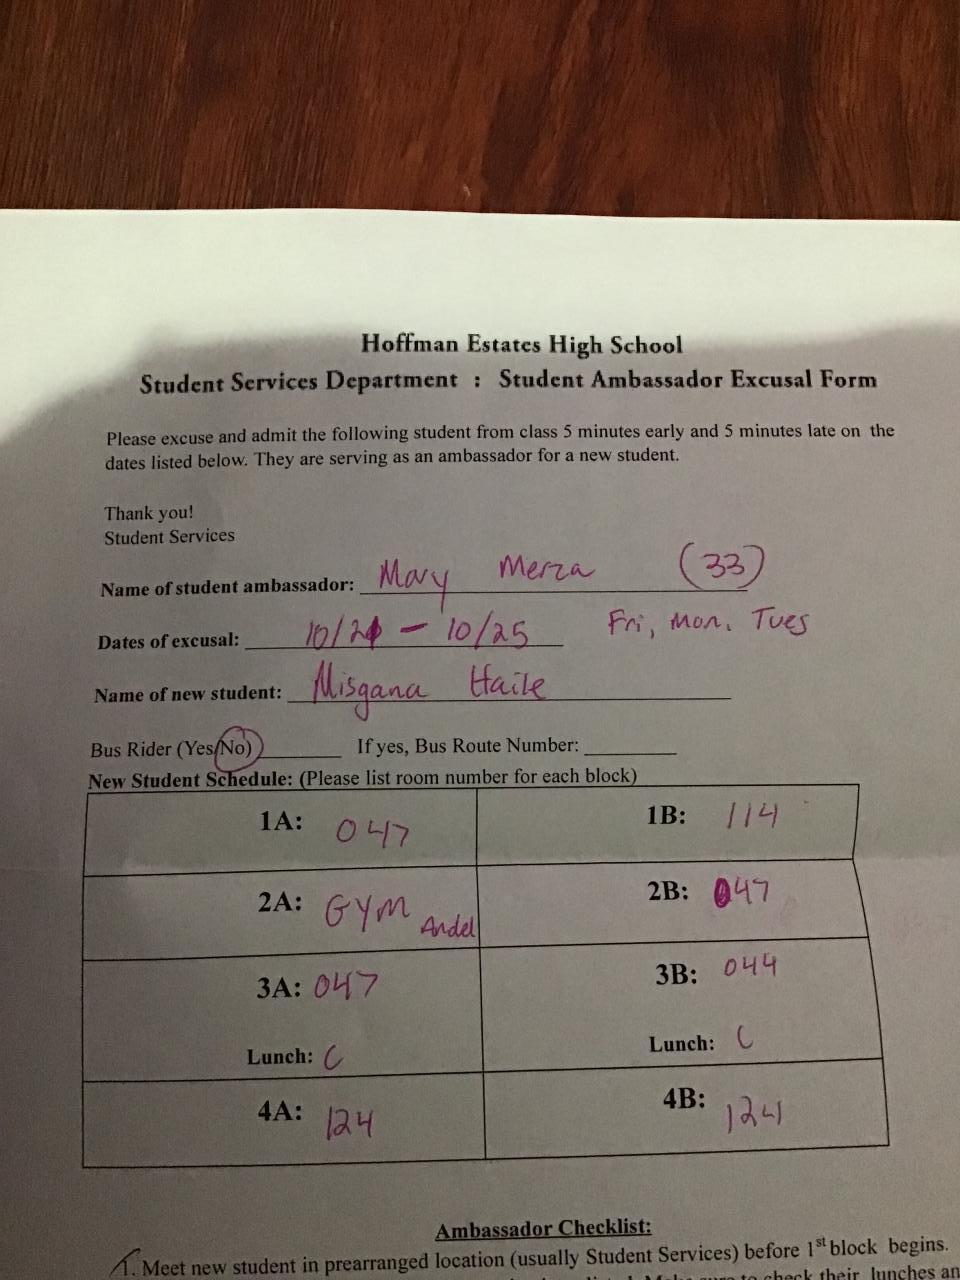 Hoffman Estates High School
Student Services Department : Student Ambassador Excusal Form
Please excuse and admit the following student from class 5 minutes early and 5 minutes late on the
dates listed below. They are serving as an ambassador for a new student.
Thank you!
Student Services
Name of student ambassador: Mary Merza (33)
Dates of excusal: 10/21 - 10/25 Fri, Mon, Tues
Name of new student: Misgana Haile
Bus Rider (Yes/No) If yes, Bus Route Number:
New Student Schedule: (Please list room number for each block)
1A: 047 1B: 114
2A: GYM Andel 2B: 047
3A: 047 3B: 044
Lunch: C Lunch: C
4A: 124 4B: 124
Ambassador Checklist:
1. Meet new student in prearranged location (usually Student Services) before 1st block begins.
to check their lunches